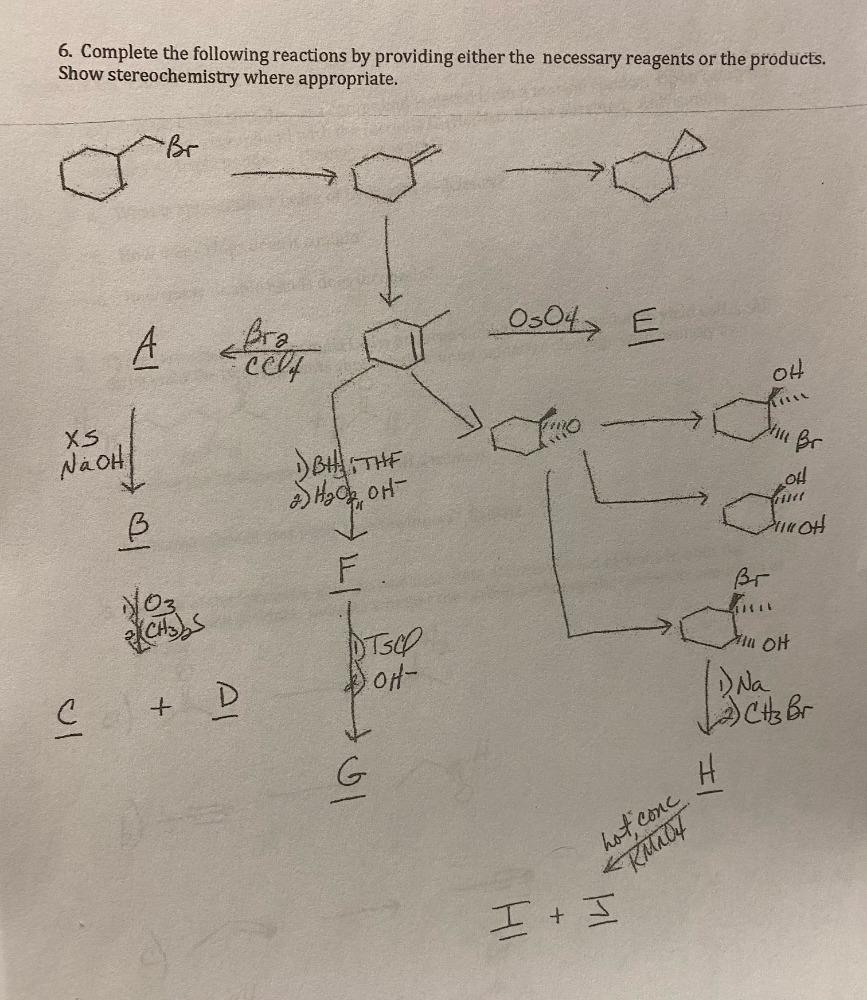 6. Complete the following reactions by providing either the necessary reagents or the products.
Show stereochemistry where appropriate.
Br
A
Br2
CCl4
OsO4
E
XS
NaOH
1) BH3:THF
2) H2O2, OH-
O
OH
Br
OH
OH
B
F
1) O3
2) (CH3)2S
1) TsCl
2) OH-
Br
OH
C + D
1) Na
2) CH3Br
G
H
hot, conc
KMnO4
I + J